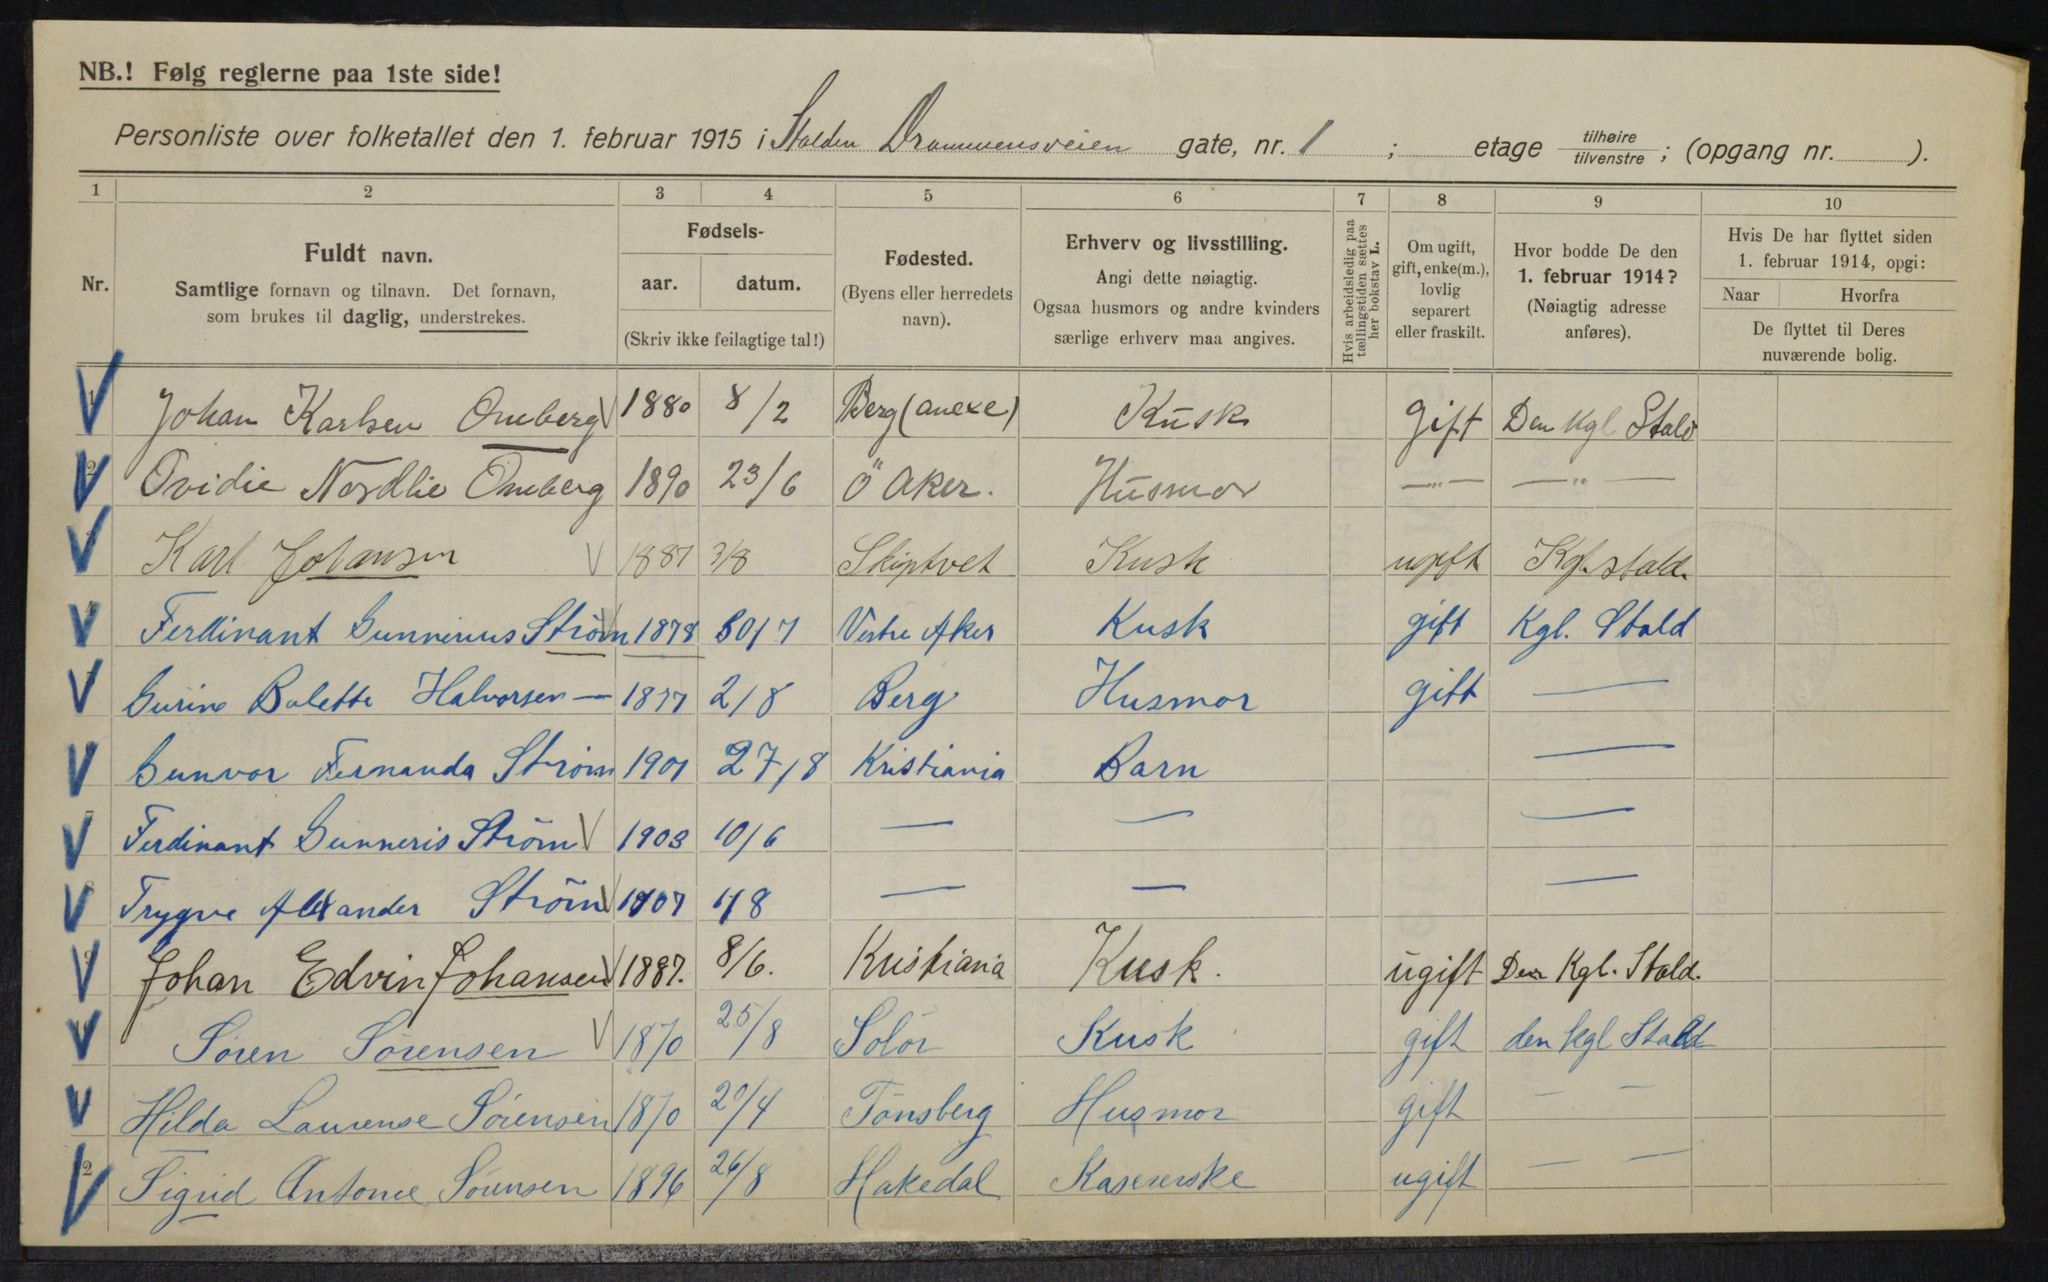 NB.! Følg reglerne paa 1ste side!
Personliste over folketallet den 1. februar 1915 i Stalden Drammensveien gate, nr. 1 ; etage tilhøire tilvenstre ; (opgang nr. ).
1 2 3 4 5 6 7 8 9 10
Nr.
Fuldt navn.
Samtlige fornavn og tilnavn. Det fornavn,
som brukes til daglig, understrekes.
Fødsels-
aar. datum.
(Skriv ikke feilagtige tal!)
Fødested.
(Byens eller herredets
navn).
Erhverv og livsstilling.
Angi dette nøiagtig.
Ogsaa husmors og andre kvinders
særlige erhverv maa angives.
Hvis arbeidsledig paa
tællingstiden sættes
her bokstav L.
Om ugift,
gift, enke(m.),
lovlig
separert
eller fraskilt.
Hvor bodde De den
1. februar 1914?
(Nøiagtig adresse
anføres).
Hvis De har flyttet siden
1. februar 1914, opgi:
Naar Hvorfra
De flyttet til Deres
nuværende bolig.
1 Johan Karlsen Omberg 1880 8/2 Berg (anexe) Kusk Gift Den Kgl Stald
2 Ovidie Nordlie Omberg 1890 23/6 Ö Aker. Husmor —"— —"—
3 Karl Johansen 1887 3/8 Skiptvet Kusk ugift Kgl. stald.
Ferdinant Gunnerius Strøm 1878 30/7 Vestre Aker Kusk gift Kgl. Stald
Gurine Bolette Halvorsen — 1877 2/8 Berg Husmor gift —
Gunvor Fernanda Strøm 1901 27/8 Kristiania Barn —
Ferdinant Gunneris Ström 1903 10/6 — — —
8 Trygve Alexander Ström 1907 1/8 — — —
9 Johan Edvin Johansen 1887. 8/6. Kristiania Kusk. ugift Den Kgl. Stald.
Sören Sörensen 1870 25/8 Solör Kusk gift den kgl Stald
Hilda Laurense Sörensen 1870 20/4 Tönsberg Husmor gift — —
12 Sigrid Antonie Sörensen 1896 26/8 Hakedal Kasererske ugift — —